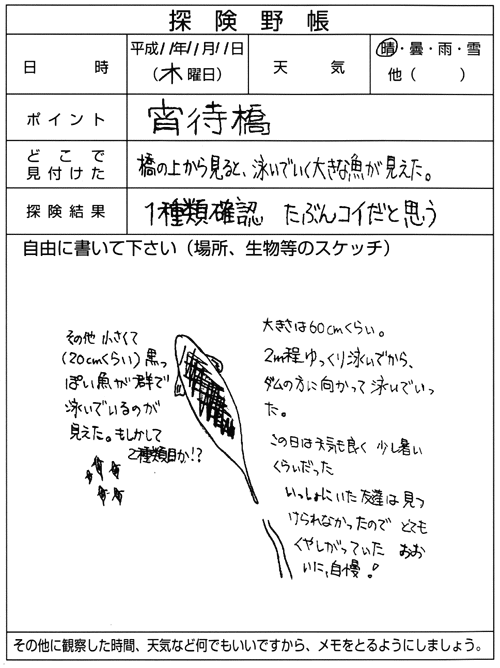 探険野帳
日時
平成11年11月11日
(木曜日)
天気
晴・曇・雨・雪
他( )
ポイント
宵待橋
どこで
見付けた
橋の上から見ると、泳いでいく大きな魚が見えた。
探険結果
1種類確認 たぶんコイだと思う
自由に書いて下さい(場所、生物等のスケッチ)
その他 小さくて
(20cmくらい)黒っ
ぽい魚が群で
泳いでいるのが
見えた。もしかして
2種類目か!?
大きさは60cmくらい。
2m程ゆっくり泳いでから、
ダムの方に向かって泳いでいっ
た。
この日は天気も良く 少し暑い
くらいだった
いっしょにいた友達は見つ
けられなかったので とても
くやしがっていた おお
いに、自慢!
その他に観察した時間、天気など何でもいいですから、メモをとるようにしましょう。